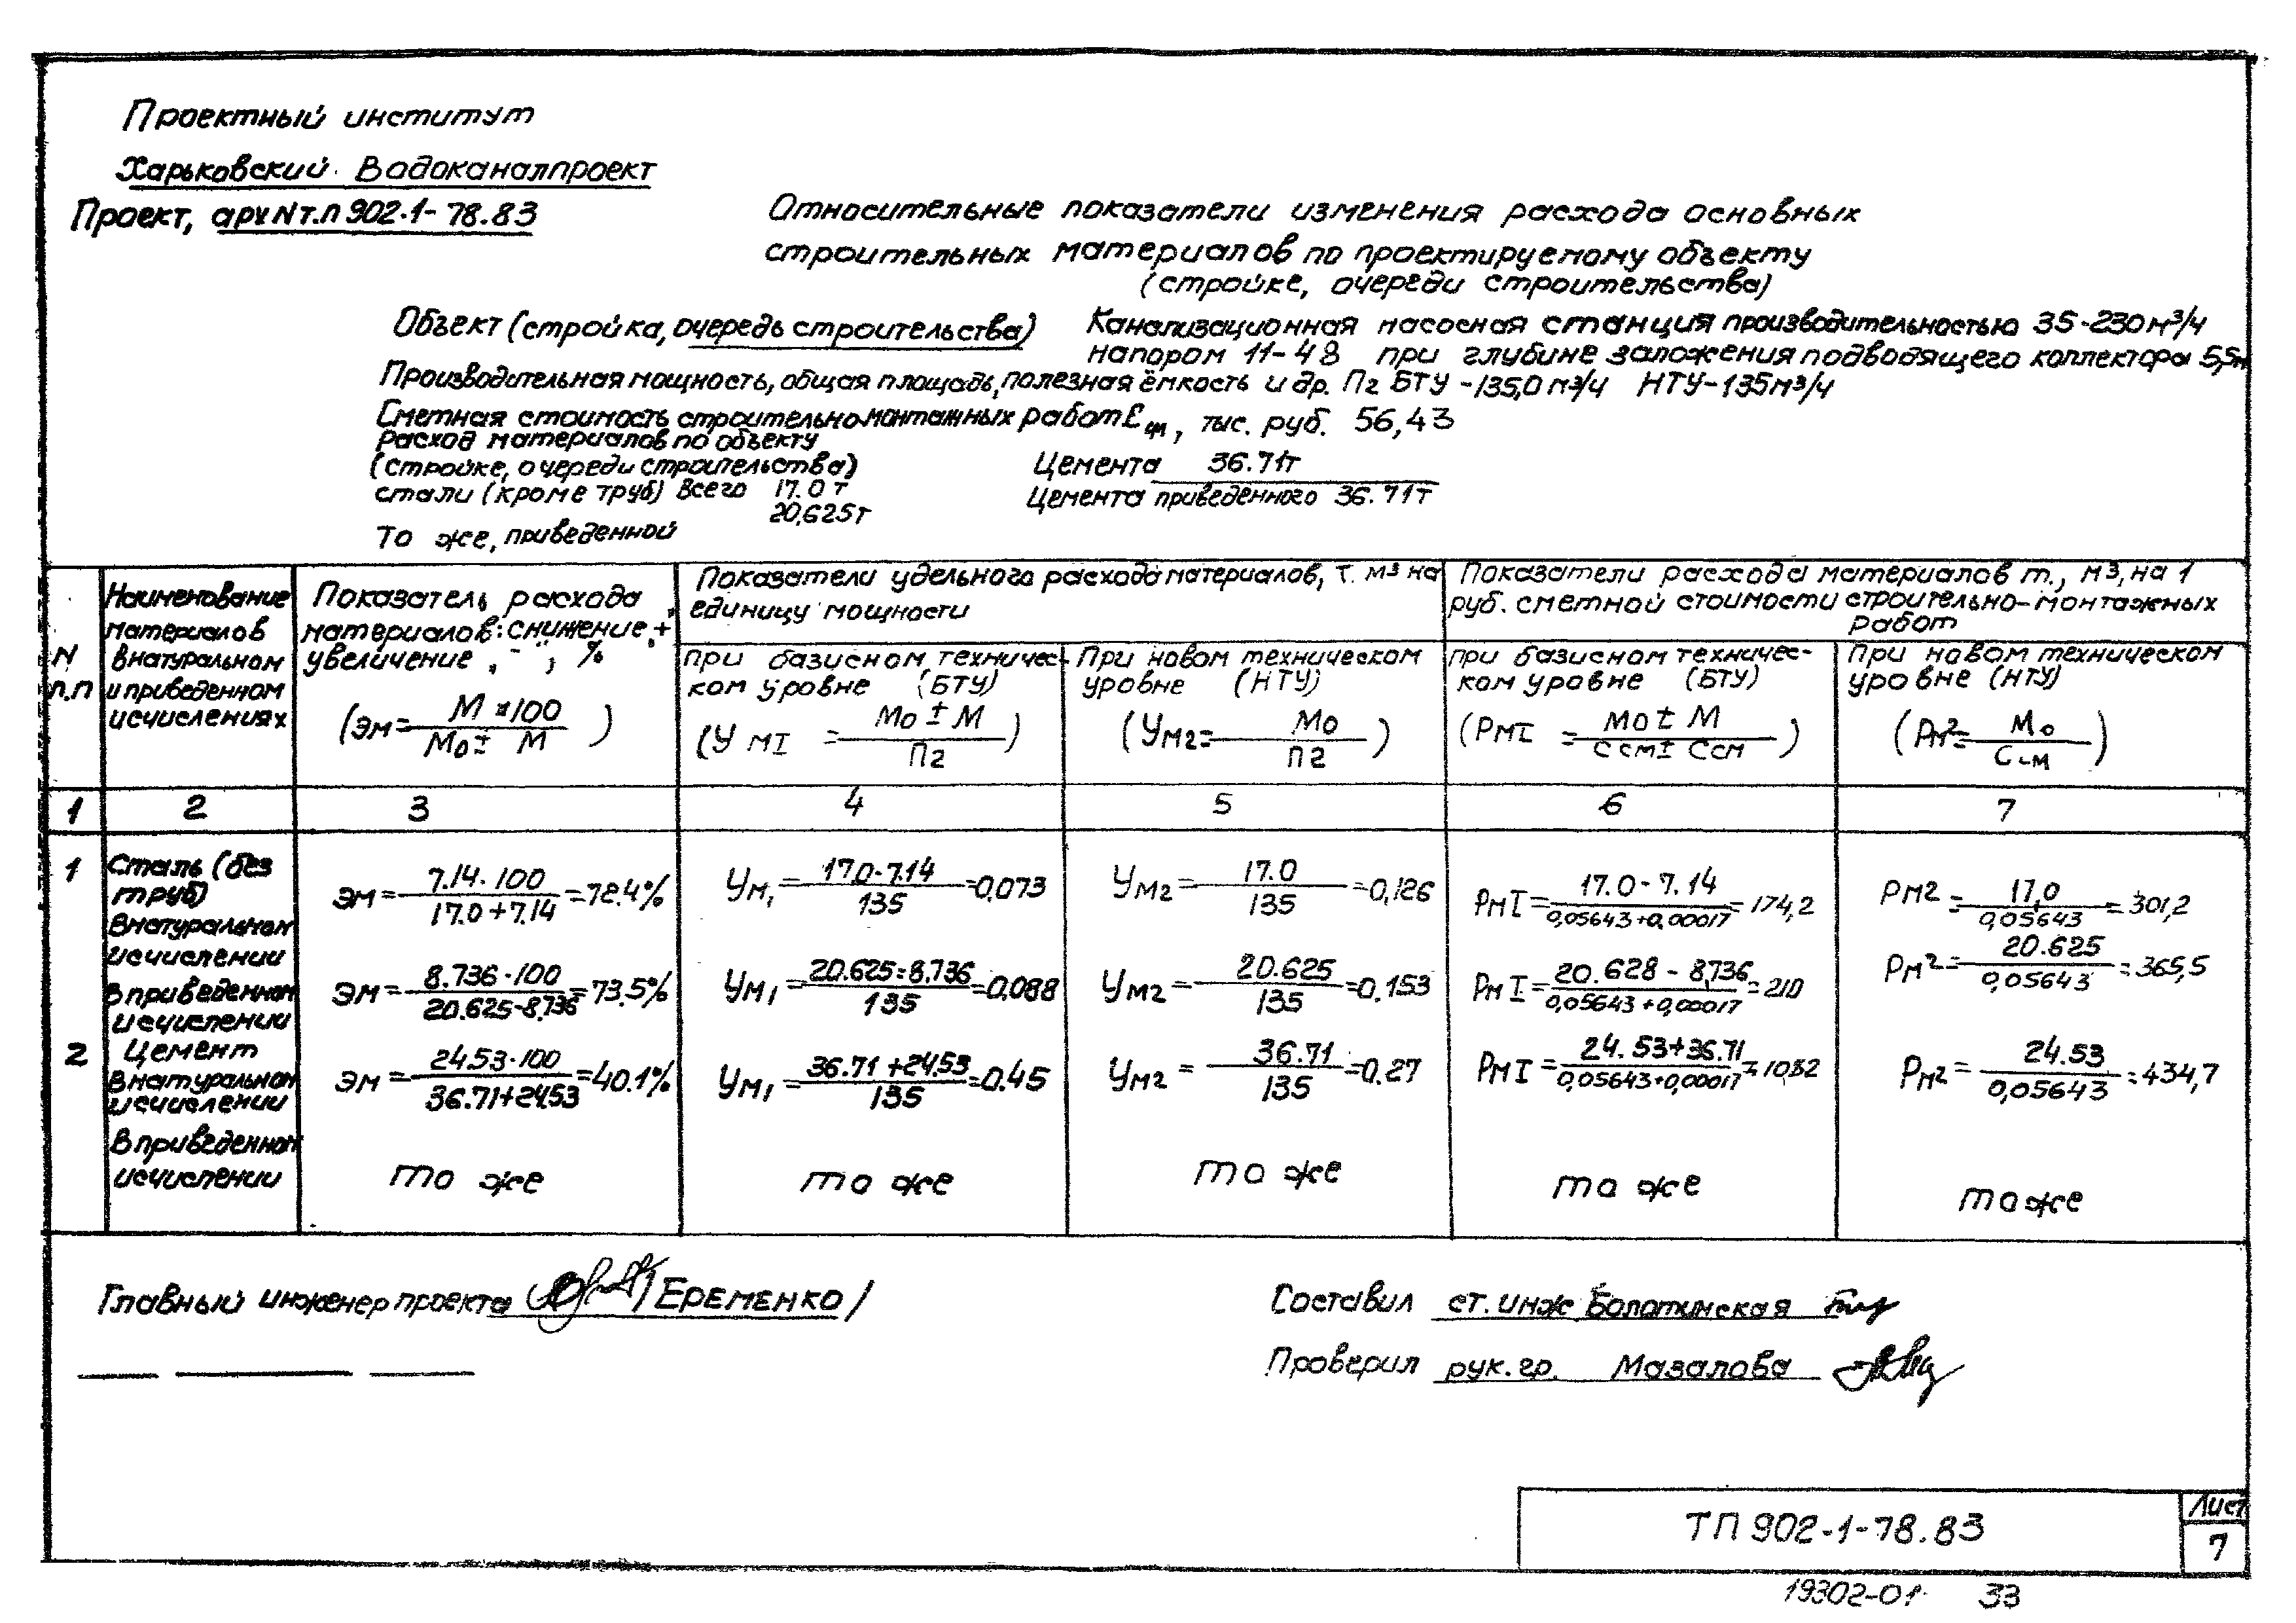 Проектный институт
Харьковский Водоканалпроект
Проект, арх N т.п 902.1-78.83
Относительные показатели изменения расхода основных
строительных материалов по проектируемому объекту
(стройке, очереди строительства)
Объект (стройка, очередь строительства) Канализационная насосная станция производительностью 35-230 м³/ч
напором 11-48 при глубине заложения подводящего коллектора 5,5м
Производительная мощность, общая площадь, полезная ёмкость и др. Пг БТУ -135,0 м³/ч НТУ-135м³/ч
Сметная стоимость строительно монтажных работ См, тыс. руб. 56,43
Расход материалов по объекту
(стройке, очереди строительства) Цемента 36.71т
стали (кроме труб) всего 17.0 т Цемента приведенного 36.71т
20,625т
То же, приведенной
N п.п
Наименование
материалов
в натуральном
и приведенном
исчислениях
Показатель расхода
материалов: снижение „+",
увеличение „-", %
(Эм= М×100 / Мо± М)
Показатели удельного расхода материалов, т. м³ на
единицу мощности
при базисном техничес-
ком уровне (БТУ)
(У мI = Мо ± М / Пг)
При новом техническом
уровне (НТУ)
(Ум2= Мо / Пг)
Показатели расхода материалов т., м³, на 1
руб. сметной стоимости строительно-монтажных
работ
при базисном техничес-
ком уровне (БТУ)
(РмI = Мо ± М / Ссм± Ссм)
При новом техническом
уровне (НТУ)
(Рм2= Мо / Ссм)
1 2 3 4 5 6 7
1 Сталь (без
труб)
в натуральном
исчислении
Эм= 7.14·100 / 17.0+7.14 =72.4%
Ум1= 17.0-7.14 / 135 =0,073
Ум2= 17.0 / 135 =0,126
РмI= 17.0-7.14 / 0,05643+0,00017 =174,2
Рм2 = 17,0 / 0,05643 =301,2
в приведенном
исчислении
Эм= 8.736·100 / 20.625-8,736 =73.5%
Ум1= 20.625=8,736 / 135 =0,088
Ум2= 20.625 / 135 =0.153
РмI= 20.628-8,736 / 0,05643+0,00017 =210
Рм2= 20.625 / 0,05643 =365,5
2 Цемент
в натуральном
исчислении
Эм= 24.53·100 / 36.71+24.53 =40.1%
Ум1= 36.71+24.53 / 135 =0.45
Ум2= 36.71 / 135 =0.27
РмI= 24.53+36.71 / 0,05643+0,00017 =1082
Рм2= 24.53 / 0,05643 =434,7
в приведенном
исчислении
то же то же то же то же то же
Главный инженер проекта /Еременко/
Составил ст. инж Болотинская
Проверил рук. гр. Мазалова
ТП 902-1-78.83
Лист
7
19302-01 33